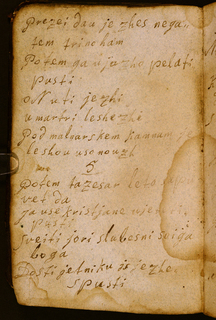 prezei daa je zhes nega
tem trinoham
Potem ga u jezhe pelati
pusti
oN uti jezhi
u martri leshezhi
Pod malvarskem kamnam
leshou usonouzh
5
Potem ta zesar leto
vet da
ja use kristjane
pusti
Sveiti jori slubosni sviga
boga
Dosti jetniku is jezhe
spusti